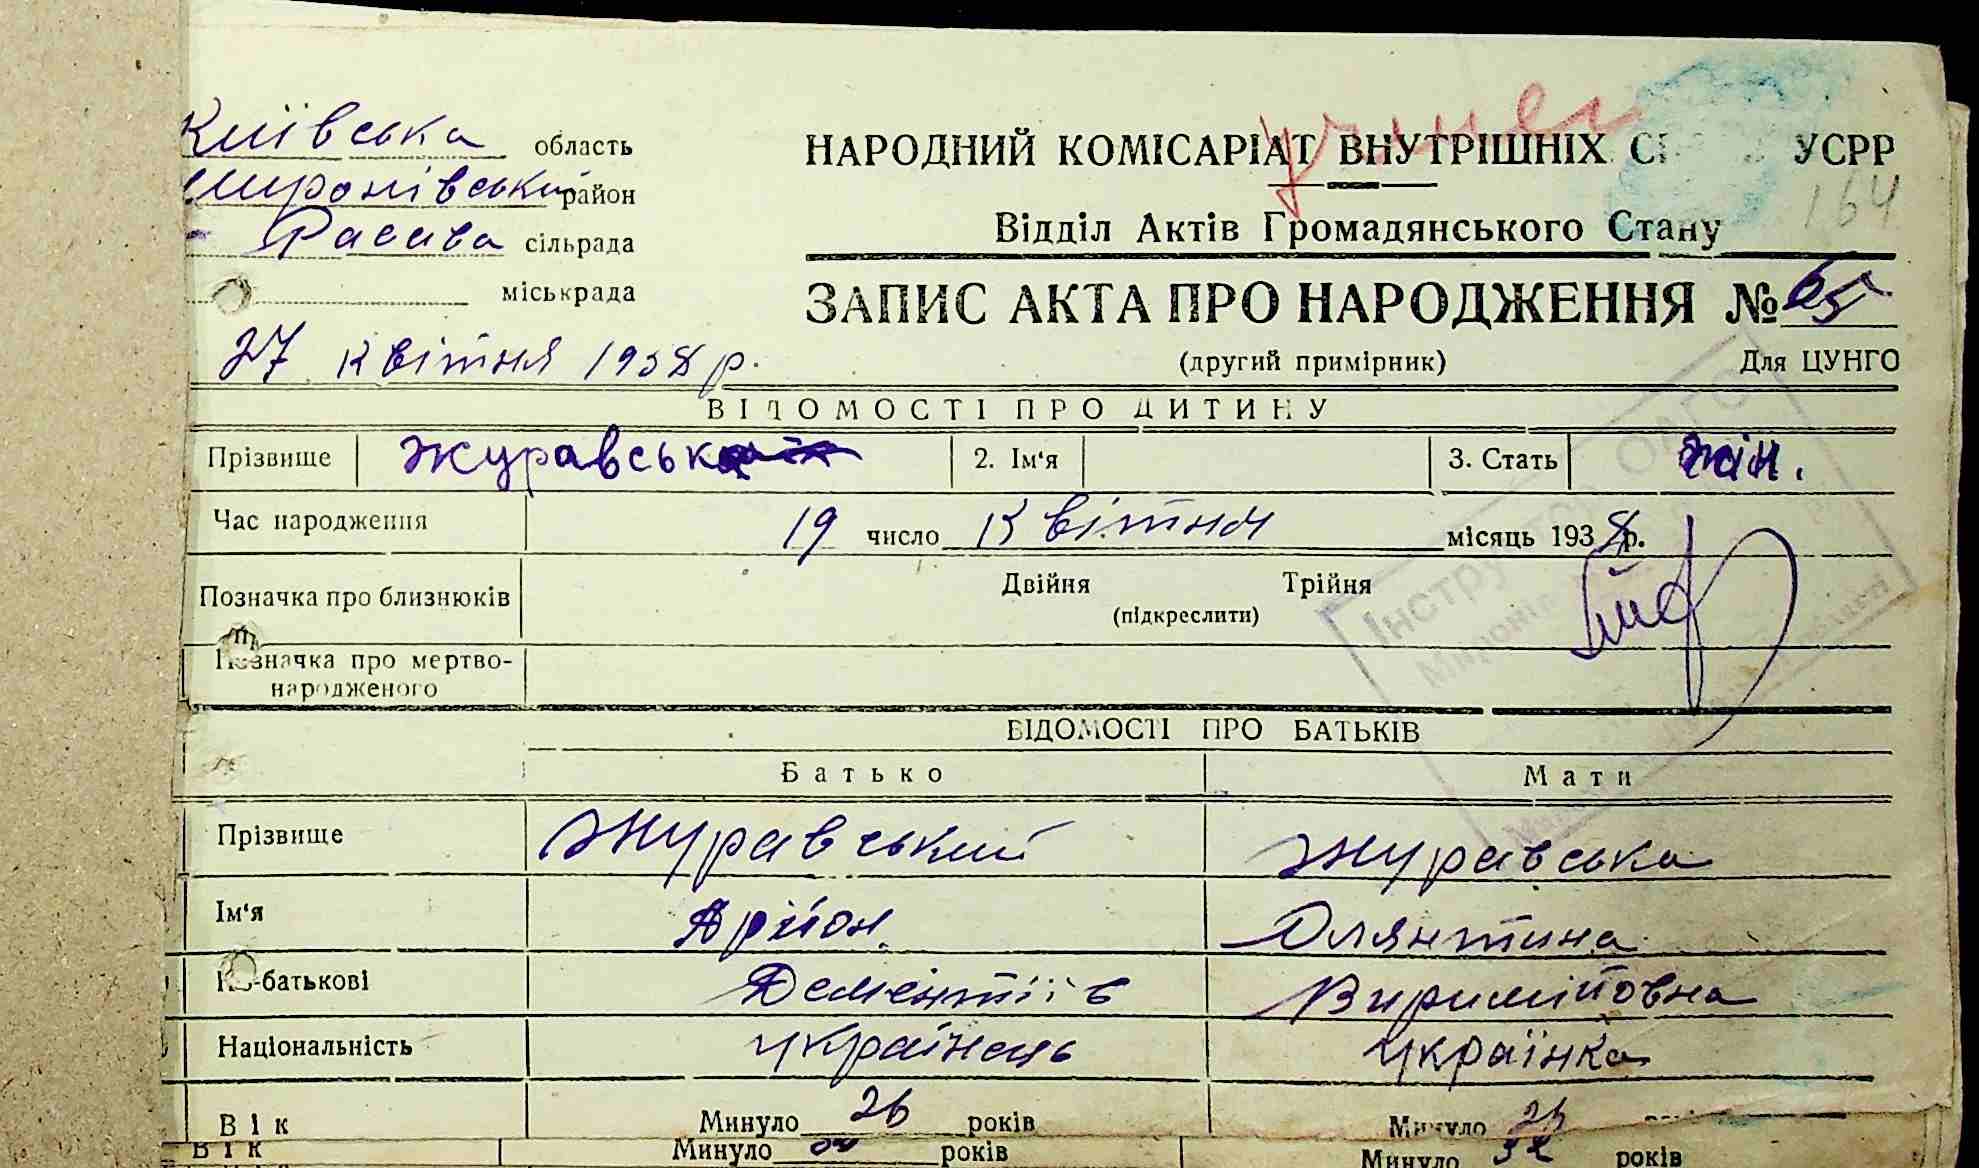 Київська область
Миронівський район
Расава сільрада
міськрада
27 квітня 1938 р.
НАРОДНИЙ КОМІСАРІАТ ВНУТРІШНІХ УСРР
164
Відділ Актів Громадянського Стану
ЗАПИС АКТА ПРО НАРОДЖЕННЯ № 65
(другий примірник) Для ЦУНГО
ВІДОМОСТІ ПРО ДИТИНУ
Прізвище Журавська 2. Ім'я 3. Стать жін.
Час народження 19 число Квітня місяць 1938 р.
Позначка про близнюків Двійня Трійня
(підкреслити)
Позначка про мертво-
народженого
ВІДОМОСТІ ПРО БАТЬКІВ
Батько Мати
Прізвище Журавський Журавська
Ім'я Арійон Олянтина
По-батькові Дементіїв
Національність українець українка
Вік Минуло 26 років Минуло
Вік Минуло років Минуло 32 років